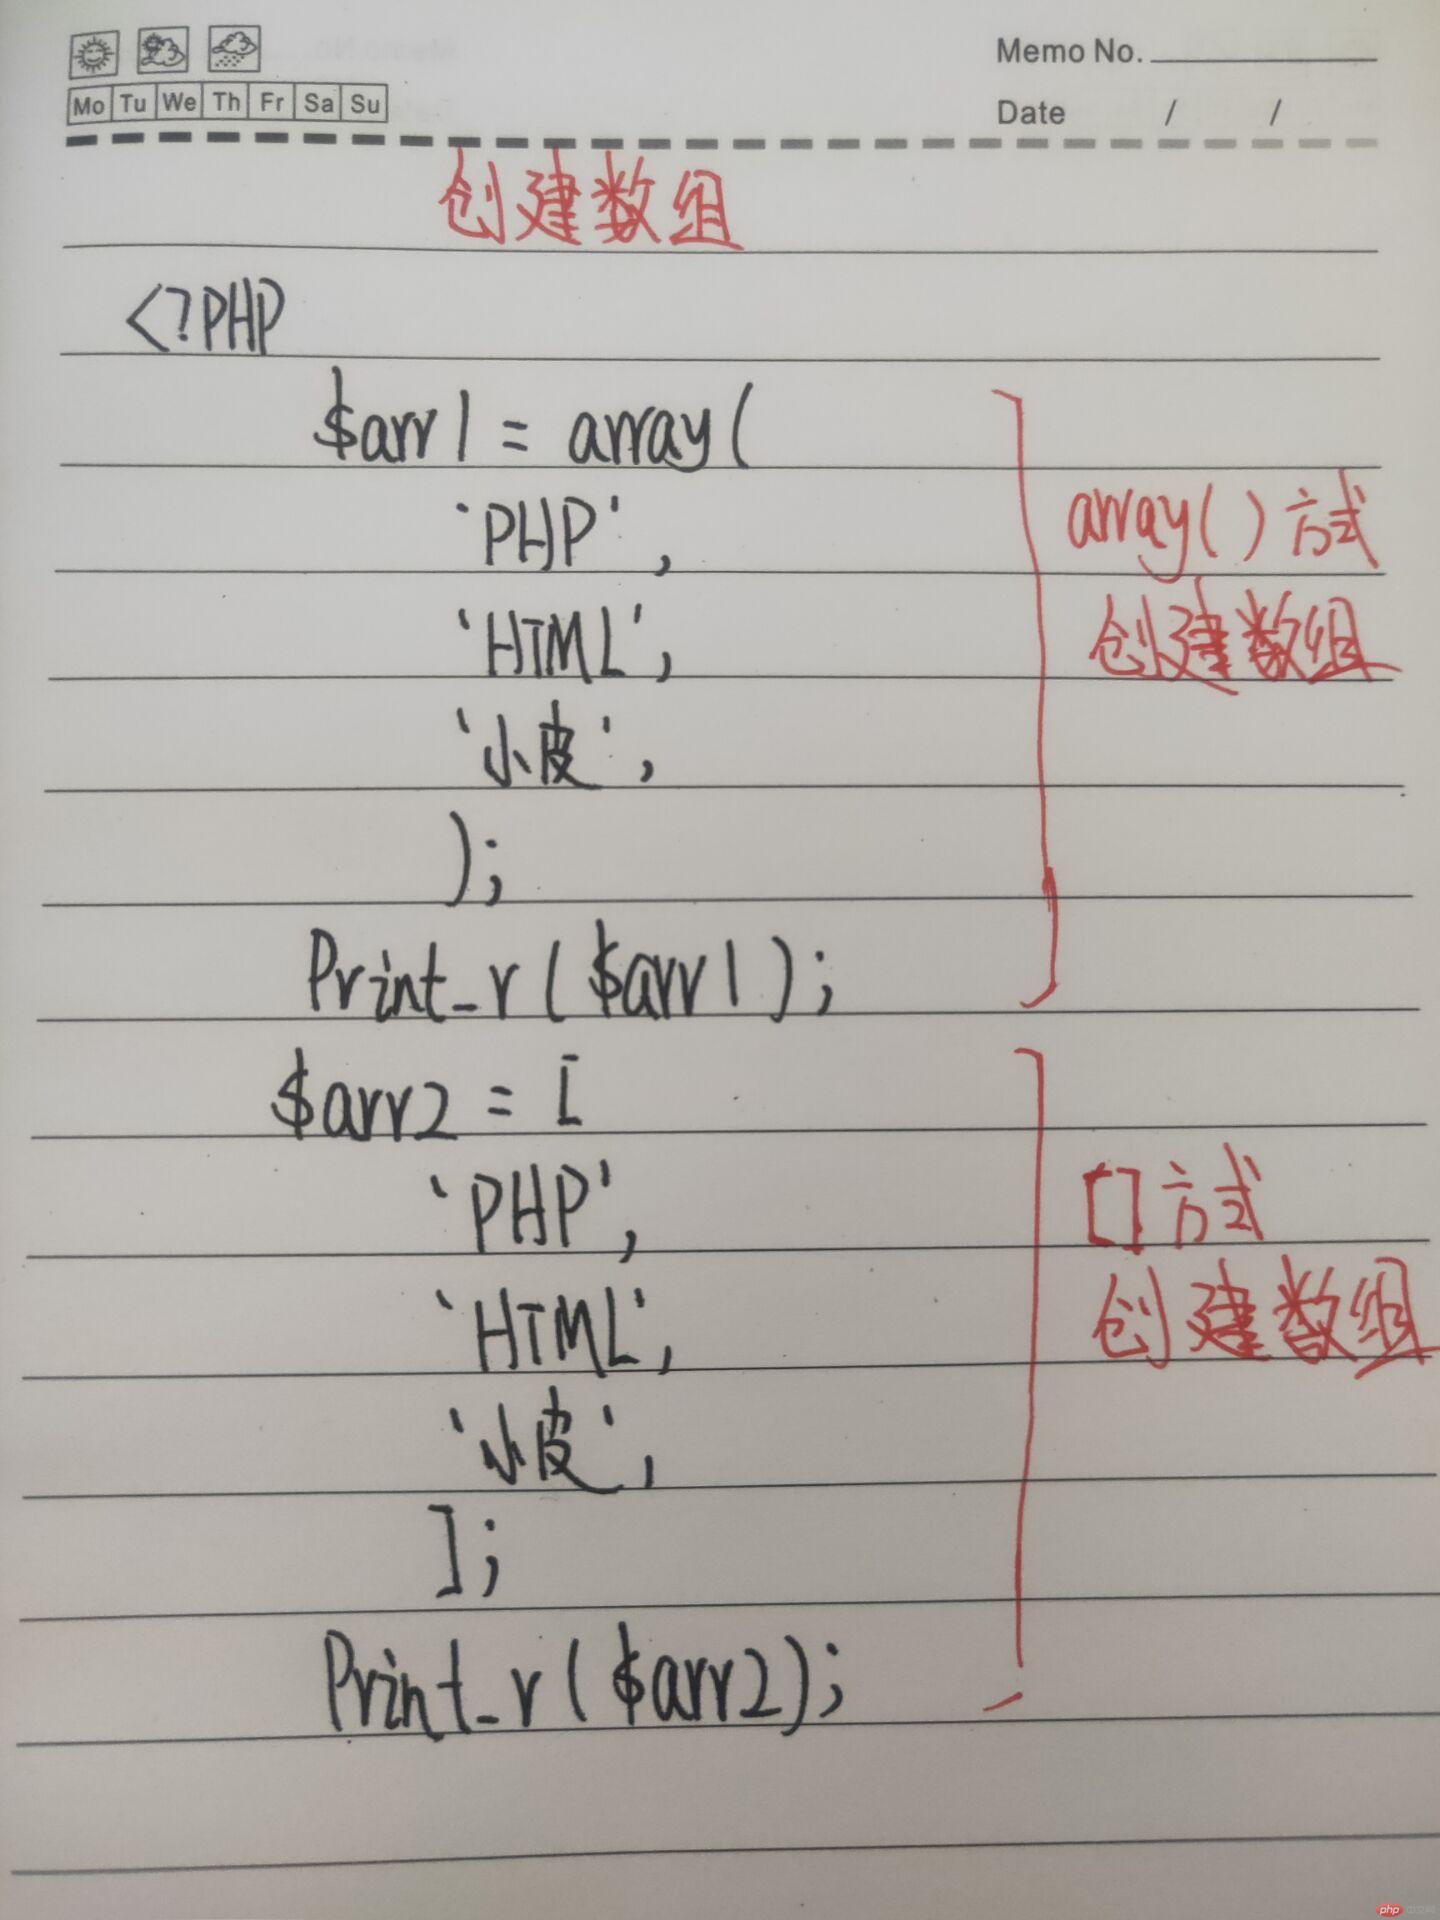 Memo No.
Mo Tu We Th Fr Sa Su
Date / /
创建数组
<?PHP
$arr1 = array(
'PHP',
'HTML',
'小皮',
);
Print_r($arr1);
array()方式
创建数组
$arr2 = [
'PHP',
'HTML',
'小皮',
];
Print_r($arr2);
[]方式
创建数组
php